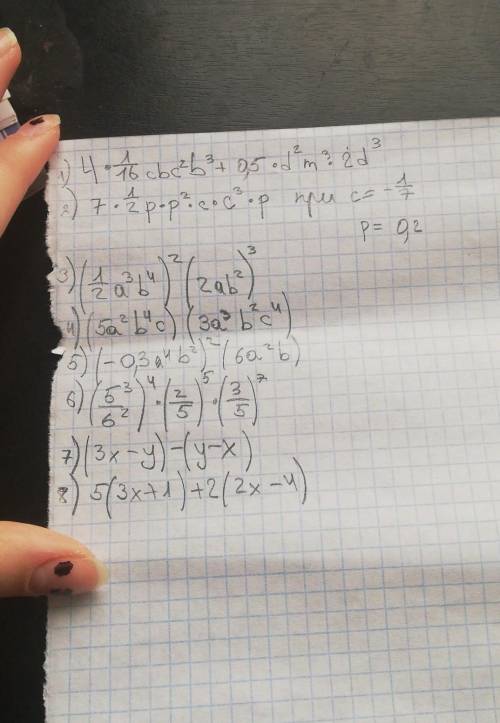 1) 4 · 1/16 cbc²b³ + 0,5 · d² m³ · 2d³
2) 7 · 1/2 p · p² · c · c³ · p при c = -1/7
p = 0,2
3) (1/2 a³b⁴)² (2ab²)³
4) (5a²b⁴c) (3a³b²c⁴)
5) (-0,3a⁴b²)² (6a²b)
6) (5³/6²)⁴ · (2/5)⁵ · (3/5)⁷
7) (3x-y)-(y-x)
8) 5(3x+1)+2(2x-4)